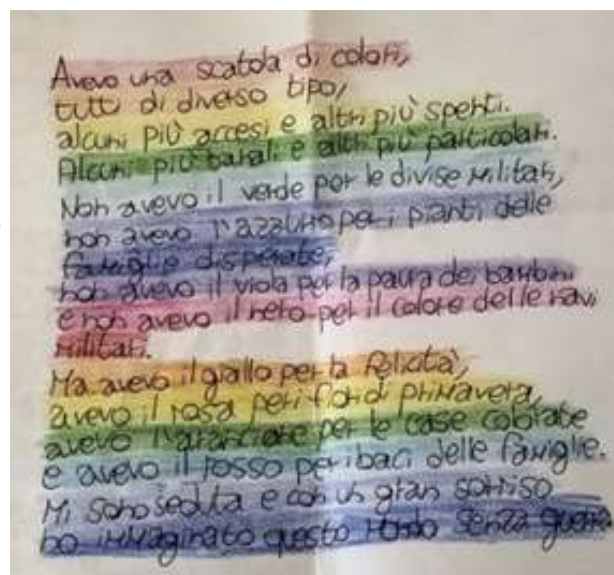 Avevo una scatola di colori,
tutti di diverso tipo,
alcuni più accesi e altri più spenti.
Alcuni più banali e altri più particolari.
Non avevo il verde per le divise militari,
non avevo l'azzurro per i pianti delle
famiglie disperate,
non avevo il viola per la paura dei bambini
e non avevo il nero per il colore delle navi
militari.
Ma avevo il giallo per la felicità,
avevo il rosa per i fiori di primavera,
avevo l'arancione per le case colorate
e avevo il rosso per i baci delle famiglie.
Mi sono seduta e con un gran sorriso
ho immaginato questo mondo senza guerra